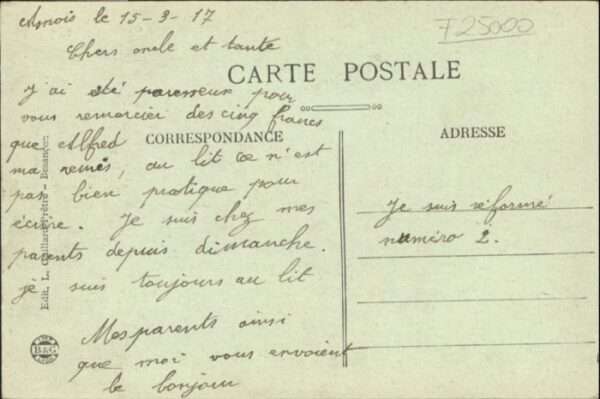 le 15-3-17
F25000
Chers oncle et tante
CARTE POSTALE
j'ai été paresseux pour
vous remercier des cinq francs
que Alfred
m'a remis, au lit ce n'est
pas bien pratique pour
écrire. Je suis chez mes
parents depuis dimanche.
je suis toujours au lit
Mes parents ainsi
que moi vous envoient
le bonjour
CORRESPONDANCE
ADRESSE
Je suis réformé
numéro 2.
Edit. L. Gaillard-Prêtre - Besançon
B&G